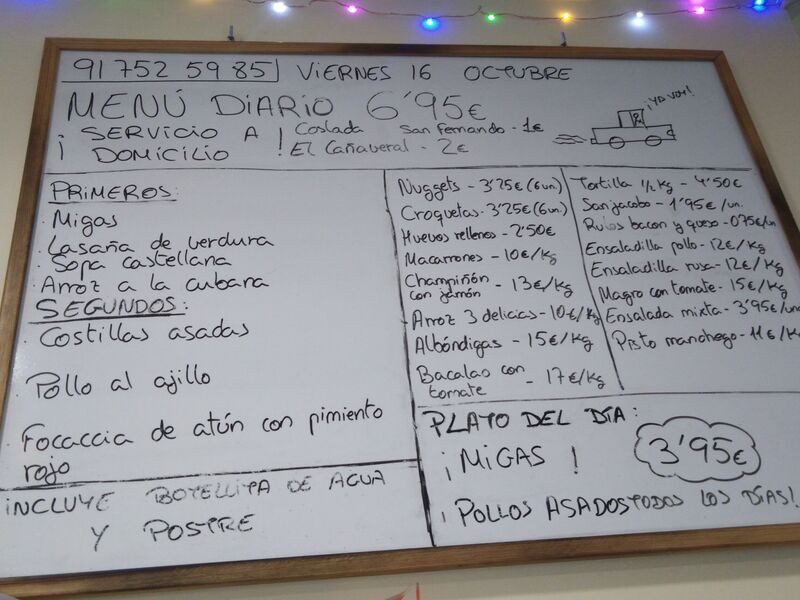 91 752 59 85 VIERNES 16 OCTUBRE
MENÚ DIARIO 6'95€
¡YA VOY!
¡ SERVICIO A DOMICILIO !
Coslada San Fernando - 1€
El Cañaveral - 2€
PRIMEROS:
· Migas
· Lasaña de verdura
· Sopa castellana
· Arroz a la cubana
SEGUNDOS:
· Costillas asadas
· Pollo al ajillo
· Focaccia de atún con pimiento
rojo
INCLUYE BOTELLITA DE AGUA
Y POSTRE
Nuggets - 3'25€ (6un.)
Croquetas - 3'25€ (6un.)
Huevos rellenos - 2'50€
Macarrones - 10€/Kg
Champiñón
con jamón - 13€/Kg
Arroz 3 delicias - 10€/Kg
Albóndigas - 15€/Kg
Bacalao con
tomate - 17€/Kg
Tortilla 1/2 Kg - 4'50€
Sanjacobo - 1'95€/un.
Rulos bacon y queso - 0'75€/un
Ensaladilla pollo - 12€/Kg
Ensaladilla rusa - 12€/Kg
Magro con tomate - 15€/Kg
Ensalada mixta - 3'95€/un
Pisto manchego - 11€/Kg
PLATO DEL DÍA:
¡MIGAS! 3'95€
¡POLLOS ASADOS TODOS LOS DÍAS!